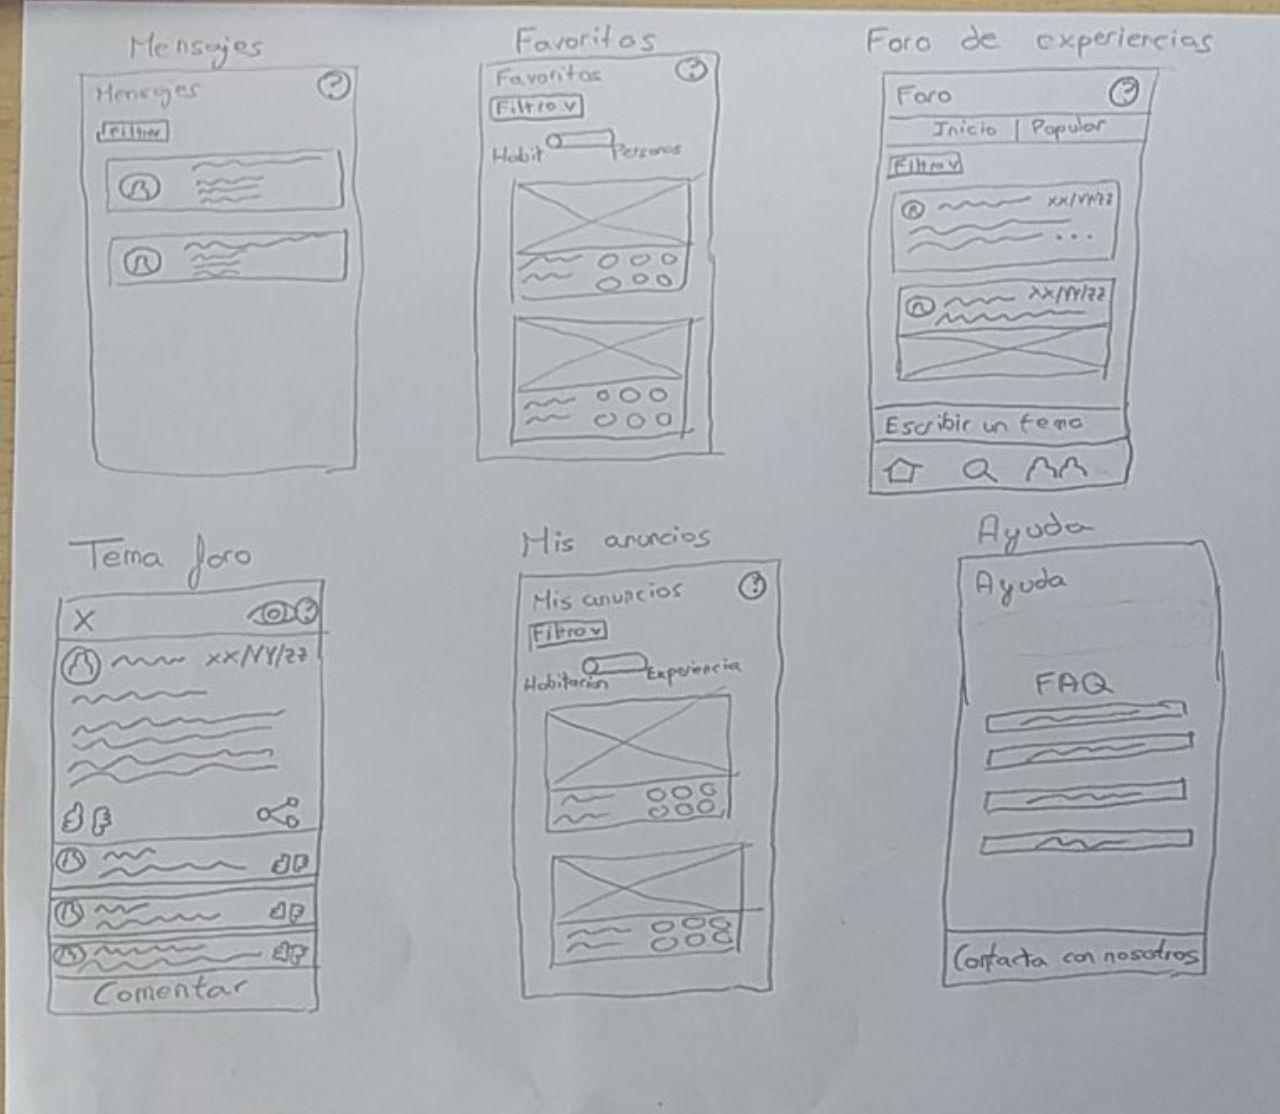 Mensajes
Mensajes
?
Filtrar
Favoritos
Favoritos
?
Filtro v
Habit
Personas
Foro de experiencias
Foro
?
Inicio | Popular
Filtro v
xx/yy/zz
...
xx/yy/zz
Escribir un tema
Tema foro
X
?
xx/yy/zz
Comentar
Mis anuncios
Mis anuncios
?
Filtro v
Habitación
Experiencia
Ayuda
Ayuda
FAQ
Contacta con nosotros